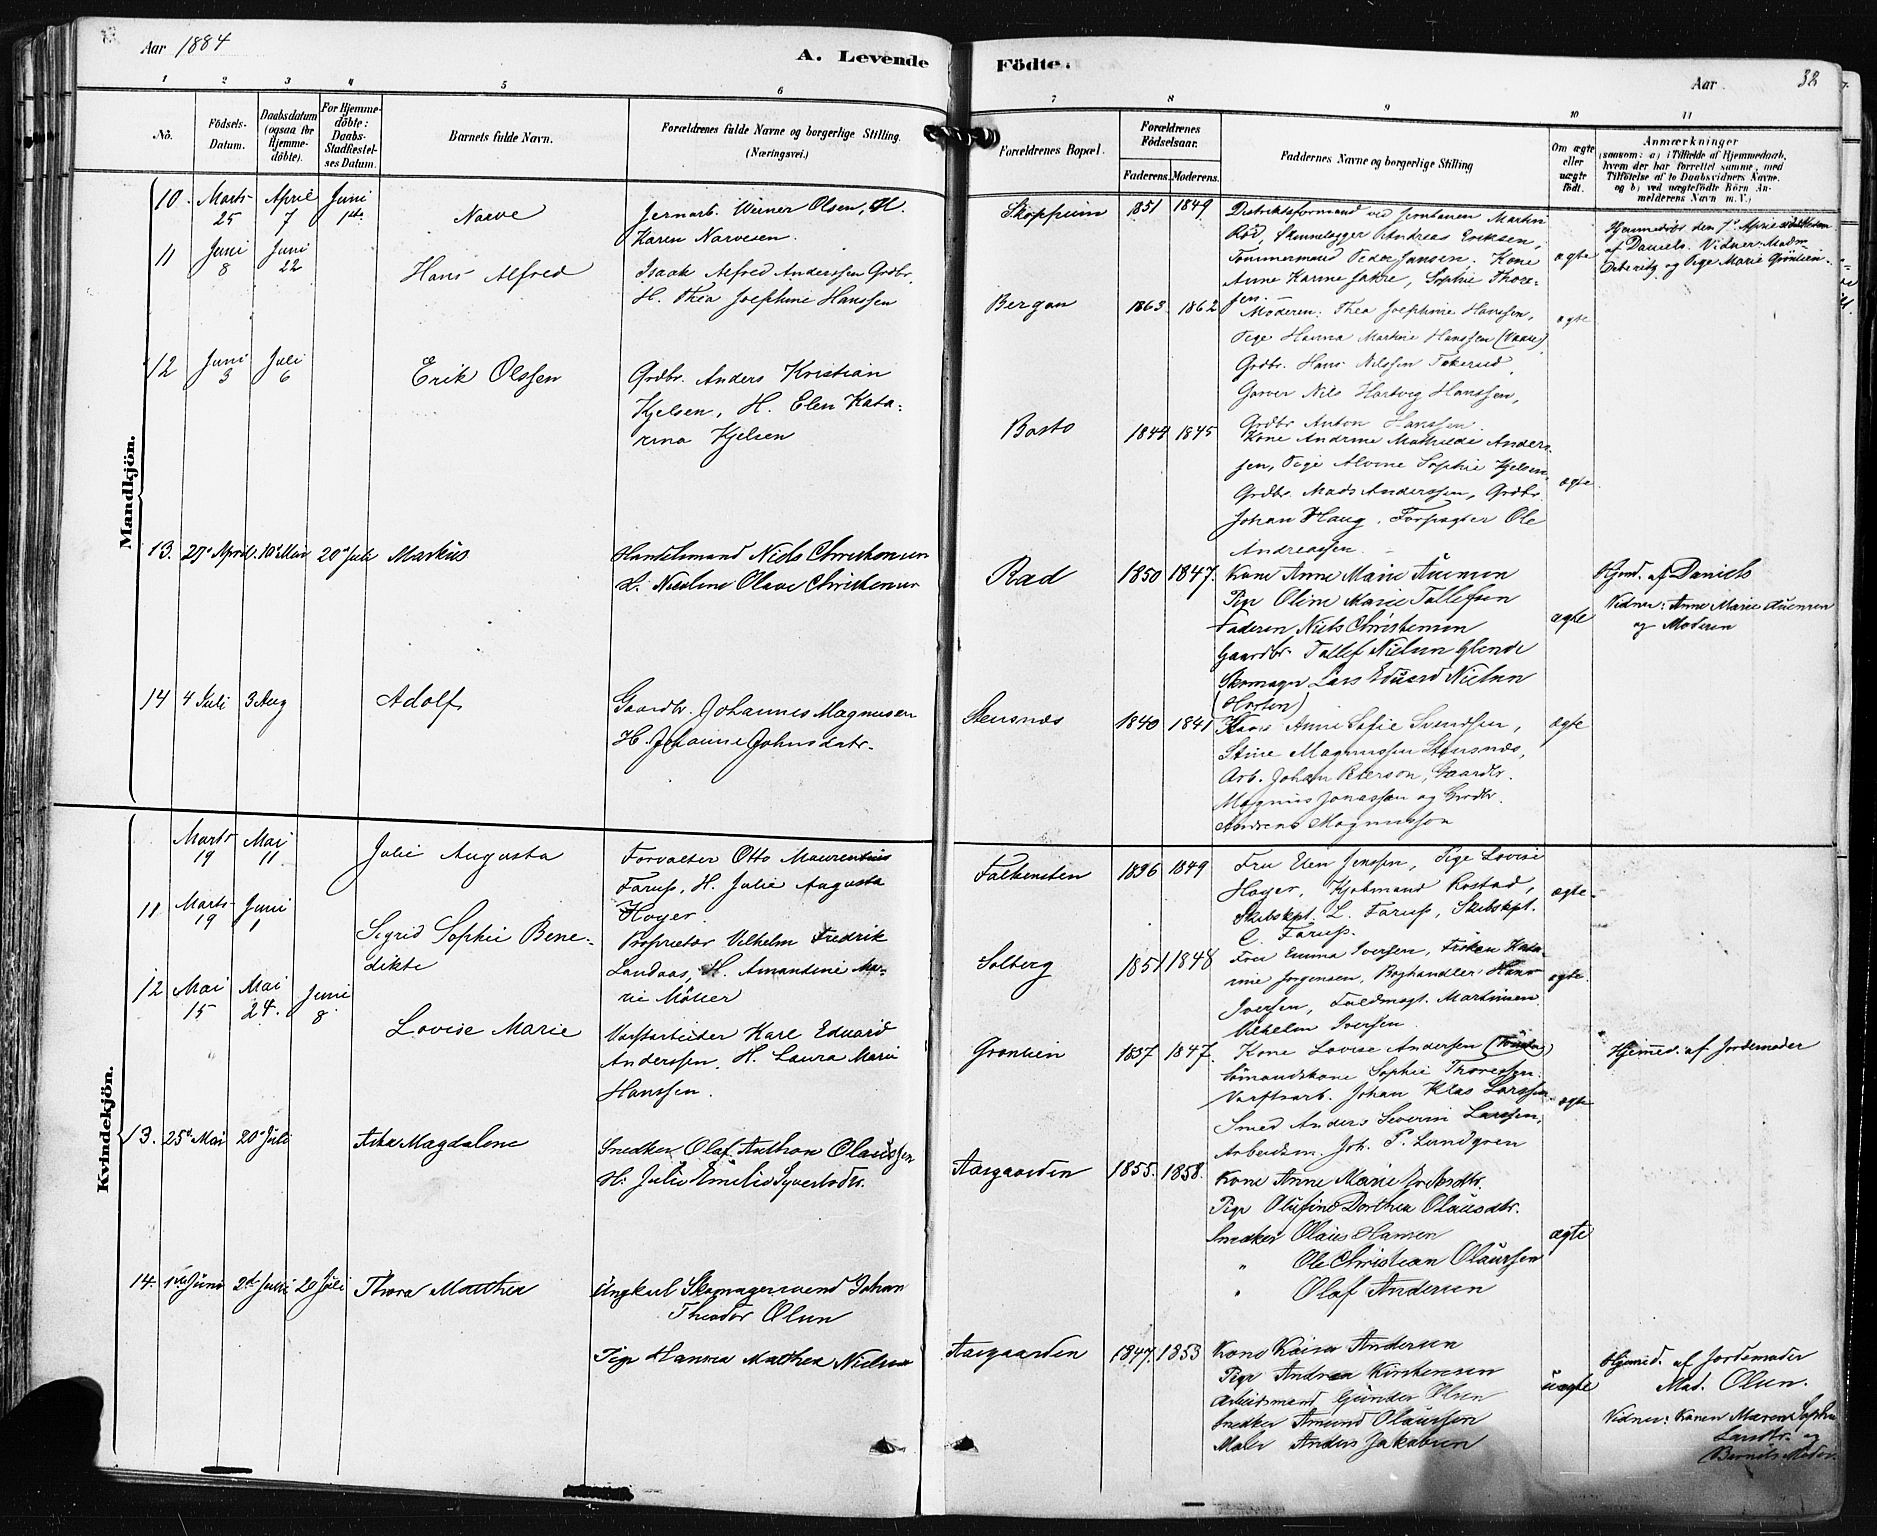 Aar 1884
A. Levende
Födte.
Aar
38
1 2 3 4 5 6 7 8 9 10 11
No.
Födsels-
Datum.
Daabsdatum
(ogsaa for
Hjemme-
döbte).
For Hjemme-
döbte:
Daabs-
Stadfæstel-
ses Datum.
Barnets fulde Navn.
Forældrenes fulde Navne og borgerlige Stilling.
(Næringsvei.)
Forældrenes Bopæl.
Forældrenes
Födselsaar.
Faderens. Moderens.
Faddernes Navne og borgerlige Stilling
Om ægte
eller
uægte
födt.
Anmærkninger
(saasom: a) i Tilfælde af Hjemmedaab,
hvem der har forrettet samme, med
Tilföielse af to Daabsvidners Navne.
og b) ved uægtefödte Börn An-
melderens Navn m.V.)
Mandkjön.
10. Marts 25 April 7 Juni 1ste
Narve
Jernarb. Werner Olsen, H.
Karen Narvesen.
Skoppum 1851 1849
Distriktsformand ved Jernbanen Martin
Röd, Skinnelægger Andreas Eriksen,
Tømmermand Peder Jansen. Kone
Anne Karine Jahre, Sophie Thore-
sen.
ægte
Hjemmedøbt den 1ste April
af Daniels. Vidner: Madm
og Pige Marie Grönlien.
11 Juni 8 Juni 22
Hans Alfred
Isaak Alfred Anderssen Grdbr.
H. Thea Josephine Hanssen
Bergan 1863 1862
Moderen: Thea Josephine Hanssen,
Pige Hanna Martine Hanssen
Grdbr. Hans Nilssen Tokerud,
Garver Nils Hartvig Hanssen,
Grdbr Anton Hanssen.
ægte
12 Juni 3 Juli 6
Erik Olssen
Grdbr. Anders Kristian
Kjelsen, H. Elen Kata-
rina Kjelsen
Basto 1844 1845
Kone Andrine Mathilde Anders-
sen, Pige Alvine Sophie Kjelsen
Grdbr. Mads Anderssen, Grdbr.
Johan Haug. Forpagter Ole
Andreassen.
ægte
13. 27de April. 10de Mai 20de Juli
Markus
Handelsmand Niels Christensen
H. Nicoline Olave Christensen
Rød 1850 1847.
Kone Anne Marie Auensen
Pige Oline Marie Tollefsen
Faderen Niels Christensen
Gaardbr. Tollef Nielsen Glende
Skomager Lars Eduard Nielsen
(Horten)
ægte
Hjemd. af Daniels
Vidner: Anne Marie Auensen
og Moderen
14 4 Juli 3 Aug
Adolf
Gaardbr. Johannes Magnusen
H. Johanne Johnsdatr.
Stensnæs 1840 1841
Kone Anne Sofie Svendsen,
Stine Magnussen Stensnæs,
Arb. Johan Peterson, Gaardbr.
Magnus Jonassen og Grdbr.
Andreas Magnusson
ægte
Kvindekjön.
Marts 19 Mai 11.
Julie Augusta
Forvalter Otto Maurentius
Farup, H. Julie Augusta
Høyer.
Falkensten 1836 1849
Fru Elen Jenssen, Pige Lovise
Høyer, Kjøbmand Rostad,
Skibskpt. L. Farup, Skibskpt.
C. Farup.
ægte
11 Marts 19 Juni 1
Sigrid Sophie Bene-
dikte
Proprietær Vilhelm Fredrik
Landaas, H. Amandine Ma-
rie Möller
Solberg 1851 1848
Fru Emma Iversen, Frøken Kata-
rine Jørgensen, Boghandler Hans
Iversen, Fuldmægt. Martinsen
Vilhelm Iversen.
ægte
12 Mai 15 Mai 24. Juni 8.
Lovise Marie
Værftsarbeider Karl Eduard
Anderssen, H. Laura Marie
Hanssen.
Grønlien 1837 1847.
Kone Lovise Andersen
Sømandskone Sophie Thoressen.
Værftsarb. Johan Klas Larssen
Smed Anders Severin Larssen,
Arbeidsm. Joh. P. Lundgren
ægte
Hjemed. af Jordemoder
13. 25de Mai 20de Juli
Asta Magdalene
Snedker Olaf Anthon Olaussen
H. Julie Emilie Syvertsdtr.
Aasgaarden 1855. 1858.
Kone Anne Marie
Pige Olufine Dorthea Olausdtr.
Snedker Olaus Hansen
" Ole Christian Olaussen
" Olaf Andersen
ægte
14. 1ste Juni 2de Juli 20 Juli
Thora Mathea
Ungkarl Skomagersvend Johan
Theodor Olsen
Pige Hanna Mathea Nielsen
Aasgaarden 1847. 1853
Kone Kaisa Andersen
Pige Andrea Kirstensen
Arbeidsmand Gunder Olsen
Snedker Amund Olaussen
Maler Anders Jakobsen
uægte
Hjemd. af Jordemoder
Mad. Olsen.
Vidner: Konen Maren Sophie
Larsdtr. og
Barnets Moder.